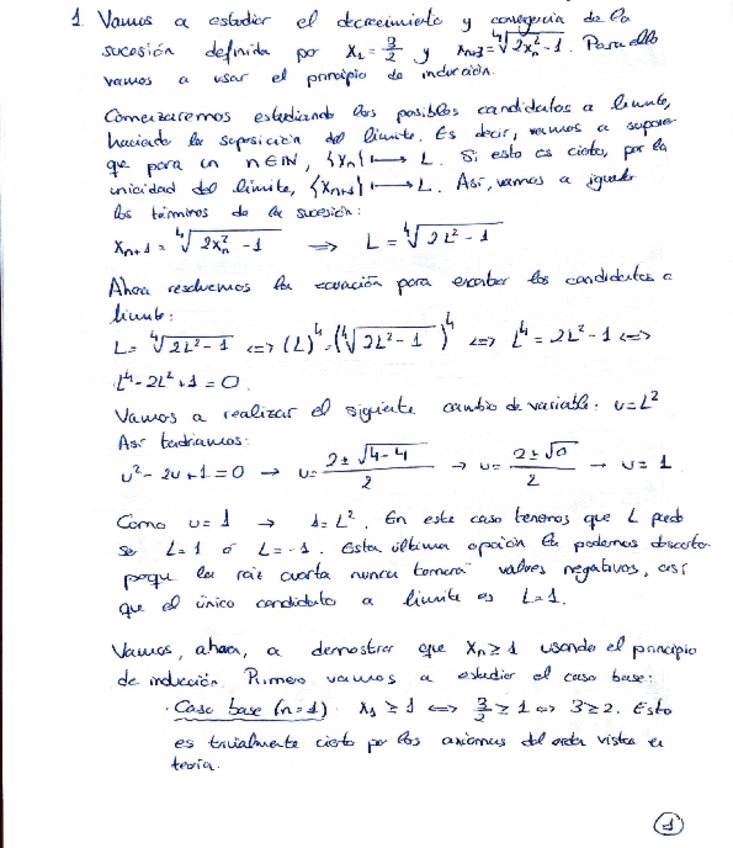 1. Vamos a estudiar el decrecimiento y convergencia de la
sucesión definida por x₁ = 3/2 y xₙ₊₁ = ⁴√(2xₙ² - 1). Para ello
vamos a usar el principio de inducción.
Comenzaremos estudiando los posibles candidatos a límite,
haciendo la suposición del límite. Es decir, vamos a suponer
que para un n∈ℕ, {xₙ} ⟼ L. Si esto es cierto, por la
unicidad del límite, {xₙ₊₁} ⟼ L. Así, vamos a igualar
los términos de la sucesión:
xₙ₊₁ = ⁴√(2xₙ² - 1) ⟹ L = ⁴√(2L² - 1)
Ahora resolvemos la ecuación para encontrar los candidatos a
límite:
L = ⁴√(2L² - 1) ⟺ (L)⁴ = (⁴√(2L² - 1))⁴ ⟺ L⁴ = 2L² - 1 ⟺
L⁴ - 2L² + 1 = 0.
Vamos a realizar el siguiente cambio de variable: u = L²
Así tendríamos:
u² - 2u + 1 = 0 → u = (2 ± √(4 - 4))/2 → u = (2 ± √0)/2 → u = 1
Como u = 1 → 1 = L². En este caso tenemos que L puede
ser L = 1 ó L = -1. Esta última opción la podemos descartar
porque la raíz cuarta nunca tomará valores negativos, así
que el único candidato a límite es L = 1.
Vamos, ahora, a demostrar que xₙ ≥ 1 usando el principio
de inducción. Primero vamos a estudiar el caso base:
· Caso base (n = 1). x₁ ≥ 1 ⟺ 3/2 ≥ 1 ⟺ 3 ≥ 2. Esto
es trivialmente cierto por los axiomas del orden vistos en
teoría.
1